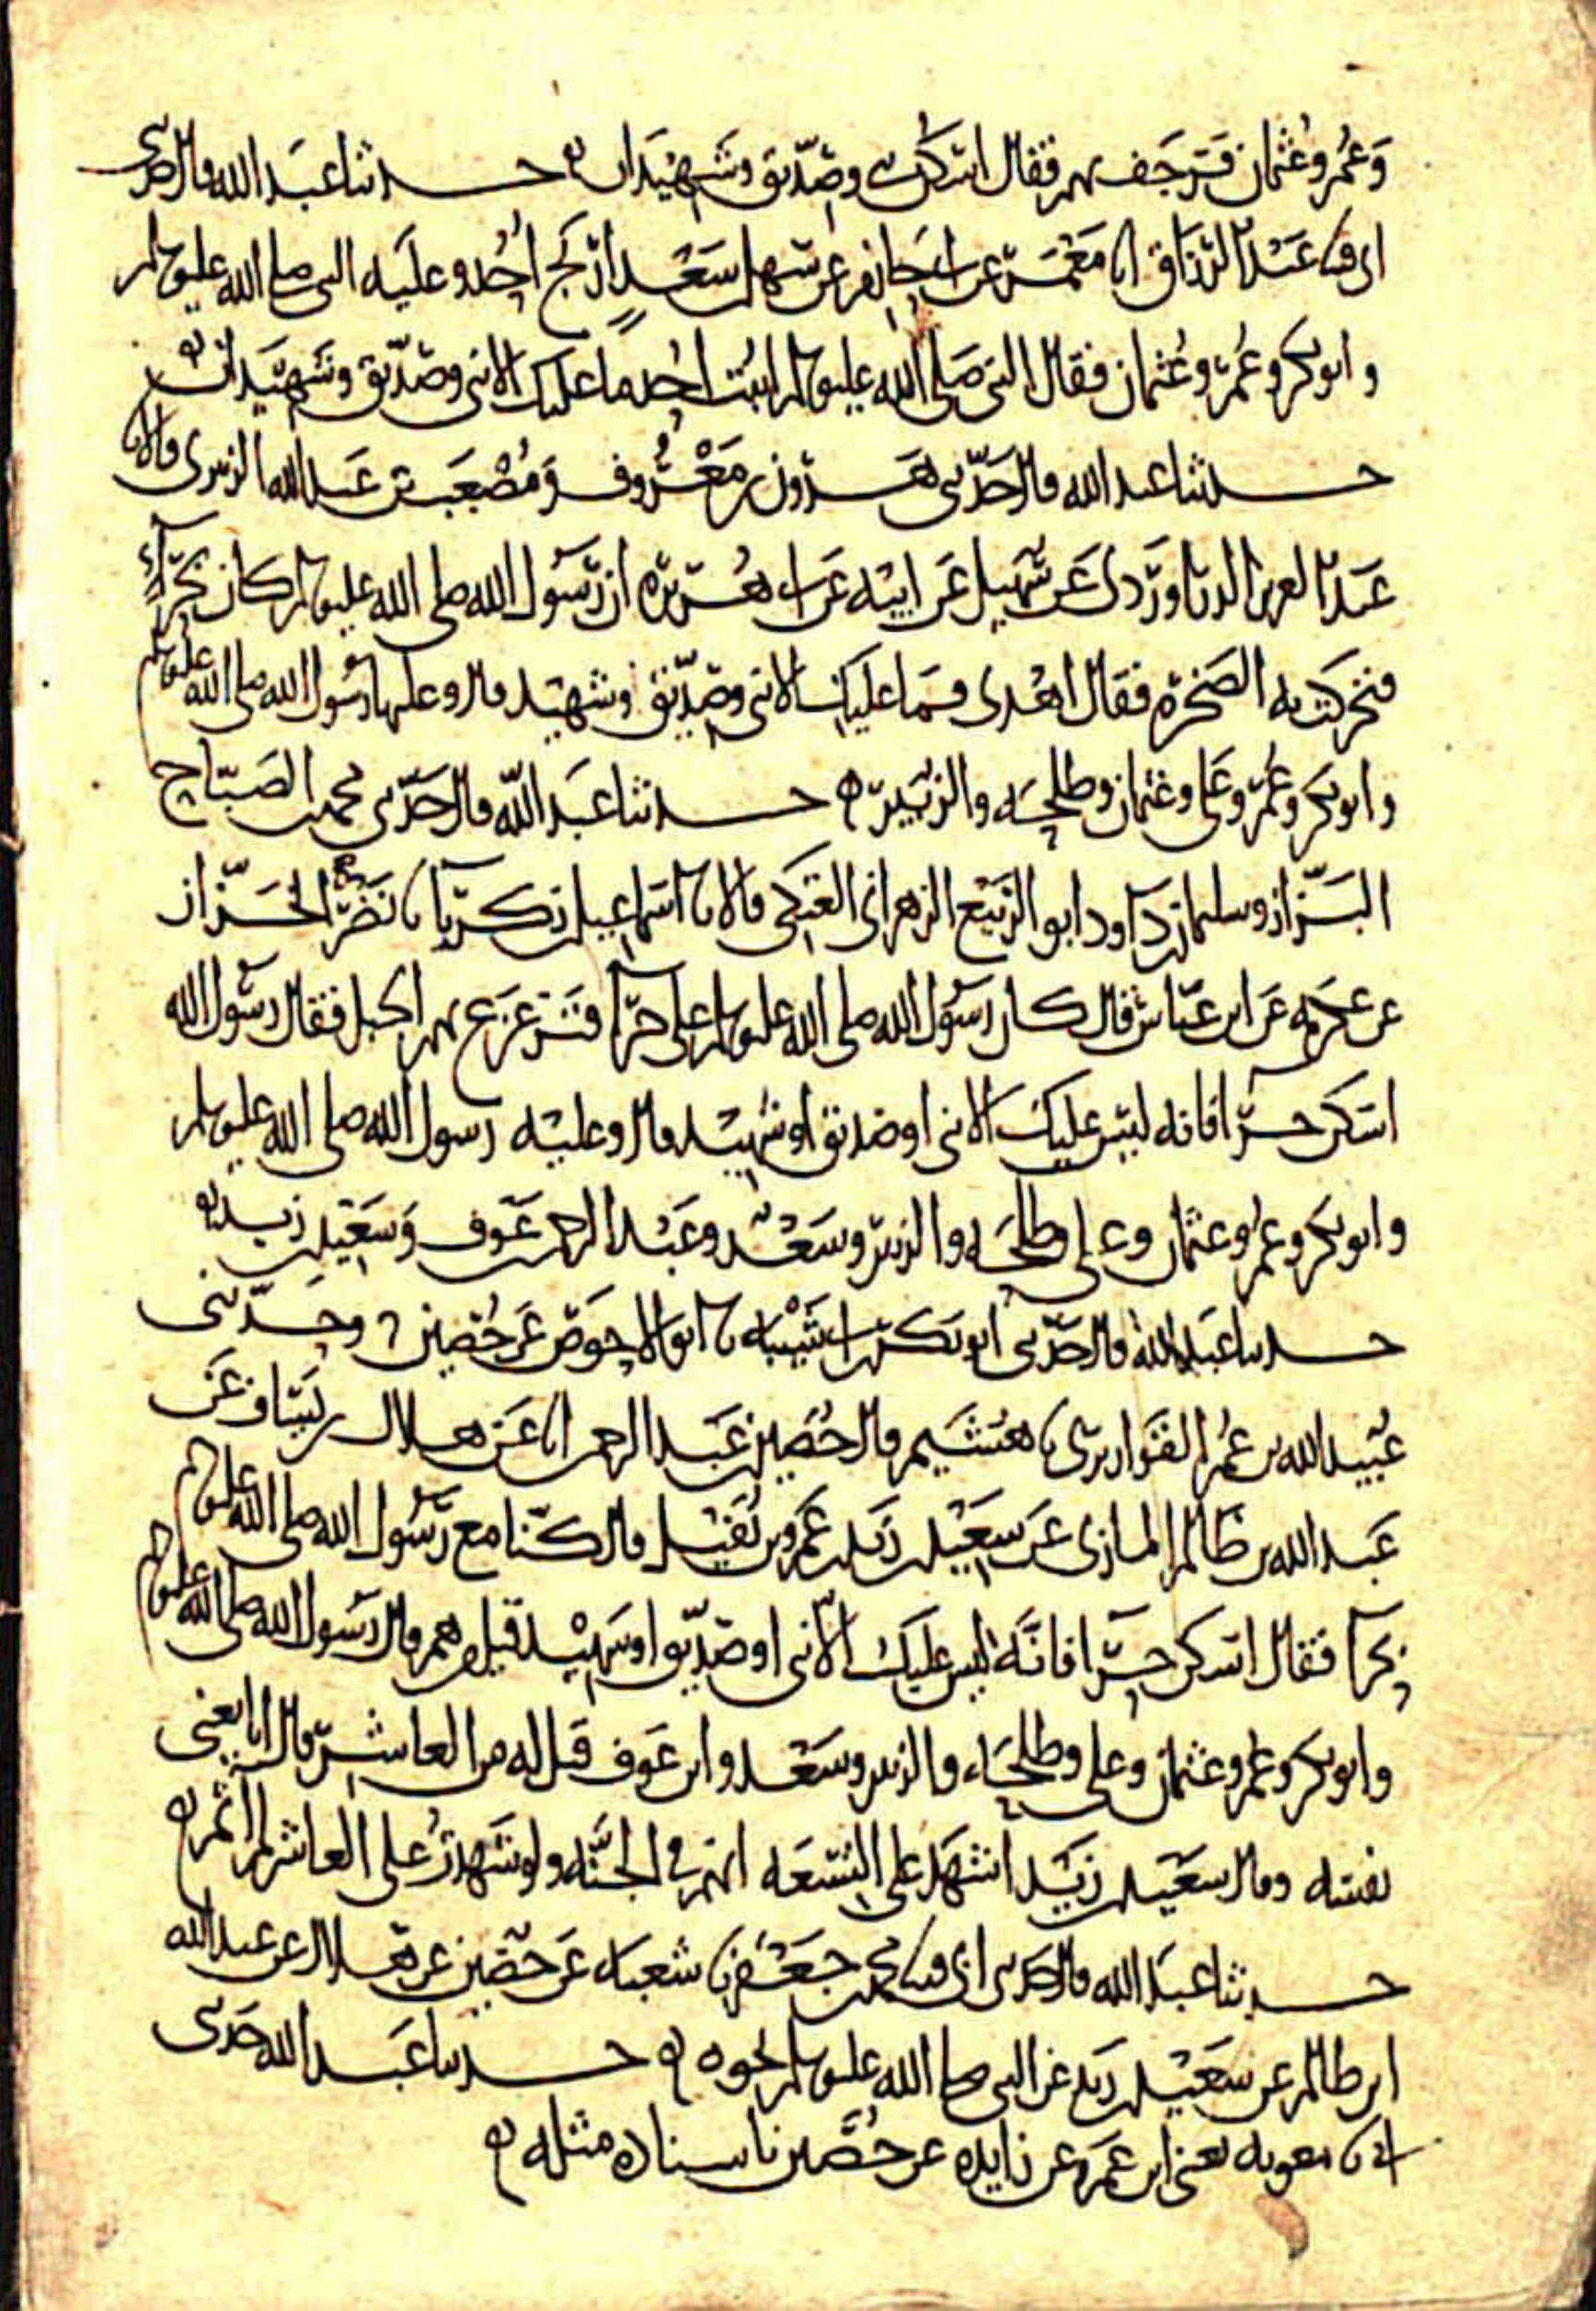 وعمر وعثمان فرجف بهم فقال اسكن نبي وصديق وشهيدان حدثنا عبد الله قال حدثني
ابي قثنا عبد الرزاق انا معمر عن ابي حازم عن سهل بن سعد ان ارتج احد وعليه النبي صلى الله عليه وسلم
وابو بكر وعمر وعثمان فقال النبي صلى الله عليه وسلم اثبت احد ما عليك الا نبي وصديق وشهيدان
حدثنا عبد الله قال حدثني هرون بن معروف ومصعب بن عبد الله الزبيري قالا نا
عبد العزيز الدراوردي عن سهيل عن ابيه عن ابي هريرة ان رسول الله صلى الله عليه وسلم كان بحراء
فتحركت به الصخرة فقال اهدي فما عليك الا نبي وصديق وشهيد قال وعليها رسول الله صلى الله عليه وسلم
وابو بكر وعمر وعلي وعثمان وطلحه والزبير حدثنا عبد الله قال حدثني محمد بن الصباح
البزاز وسليمان بن داود ابو الربيع الزهراني العتكي قالا نا اسماعيل بن زكريا نا نضر الخزاز
عن عكرمه عن ابن عباس قال كان رسول الله صلى الله عليه وسلم على حرا فتزعزع بهم الجبل فقال رسول الله
اسكن حرا فانه ليس عليك الا نبي او صديق او شهيد قال وعليه رسول الله صلى الله عليه وسلم
وابو بكر وعمر وعثمان وعلي وطلحه والزبير وسعد وعبد الرحمن بن عوف وسعيد بن زيد
حدثنا عبد الله قال حدثني ابو بكر بن ابي شيبه نا ابو الاحوص عن حصين وحدثني
عبيد الله بن عمر القواريري نا هشيم قال حصين بن عبد الرحمن انا عن هلال بن يساف عن
عبد الله بن ظالم المازني عن سعيد بن زيد بن عمرو بن نفيل قال كنا مع رسول الله صلى الله عليه وسلم
بحرا فقال اسكن حرا فانه ليس عليك الا نبي او صديق او شهيد قيل ومن هم قال رسول الله صلى الله عليه وسلم
وابو بكر وعمر وعثمان وعلي وطلحه والزبير وسعد وابن عوف قيل له من العاشر قال انا يعني
نفسه وقال سعيد بن زيد اشهد على التسعه انهم في الجنه ولو شهدت على العاشر لم اثم
حدثنا عبد الله قال حدثني ابي قثنا محمد بن جعفر نا شعبه عن حصين عن هلال عن عبد الله
ابن ظالم عن سعيد بن زيد عن النبي صلى الله عليه وسلم نحوه حدثنا عبد الله حدثني
ابي نا معويه يعني ابن عمرو عن زايده عن حصين باسناده مثله